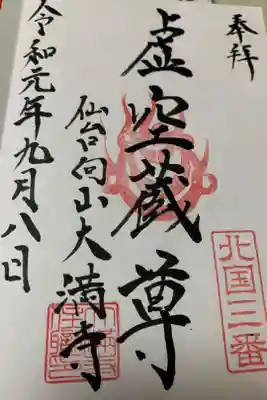 奉拝
北国三番
虚空蔵尊
仙台向山大満寺
令和元年九月八日